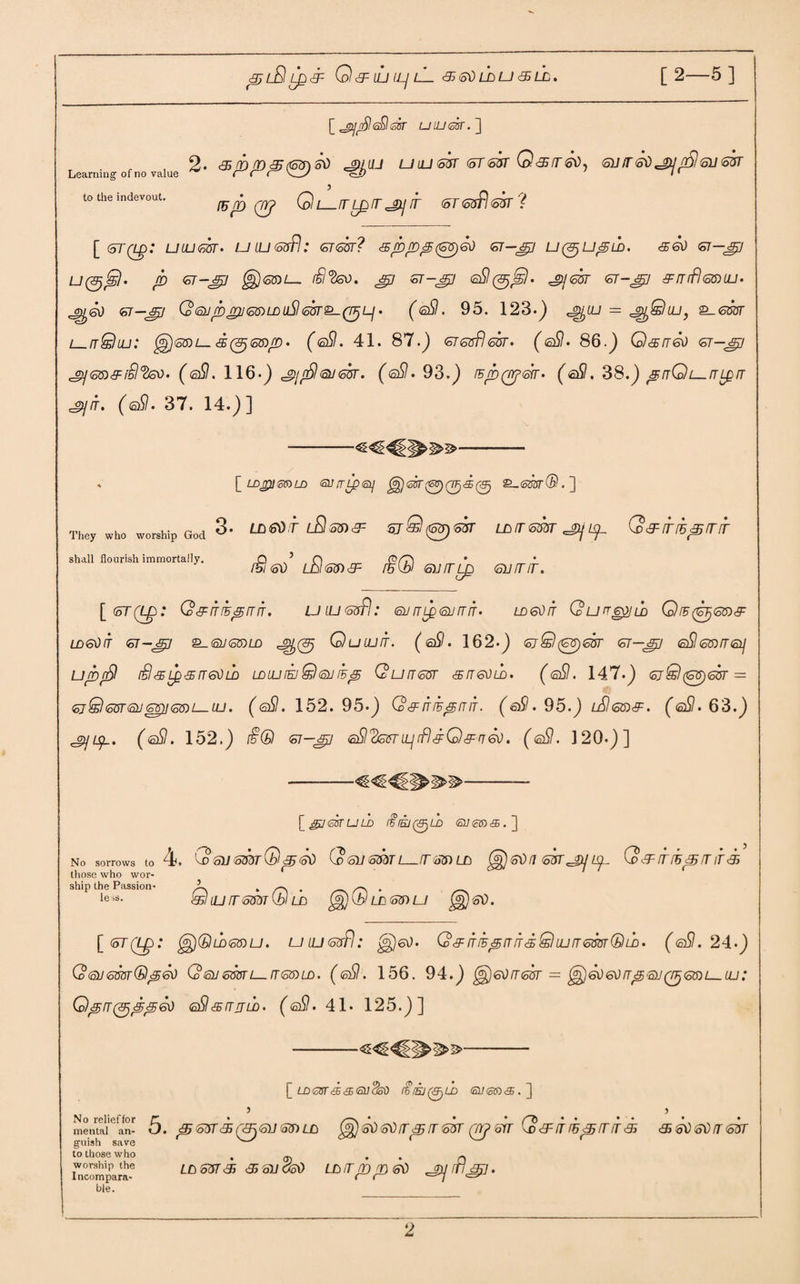 தமிழ்ச் செய்யுட் கலம்பகம். [ 2—5 ]
[ அறிவின் பயன். ]
Learning of no value 2. கற்றதனால் ஆய பயன் என் கொல், வாலஅறிவன்
to the indevout. நற் றாள் தொழாஅர் எனின் ?
[ எழு: பயன். பயனி: என்? கற்றதனால் எ—து பகுபதம். கல் எ—து
பகுதி. ற் எ—து இடை நிலை. து எ—து விகுதி. அன் எ—து சாரியை.
ஆல் எ—து வேற்றுமையின்உருபு. (வி. 95. 123.) ஆய = ஆகிய, உண்
டாகிய: இடைக்குறை. (வி. 41. 87.) எனின். (வி. 86.) கொல் எ—து
அசைநிலை. (வி. 116.) அறிவன். (வி. 93.) நற்றாள். (வி. 38.) தாடொழா
அர். (வி. 37. 14.)]
[ மறுமை வாழ்வு இன்னாருக்கு உண்டு. ]
They who worship God 3. மலர் மிசை ஏகினான் மாண்அடி சேர்ந்தார்
shall flourish immortally. நில மிசை நீடு வாழ் வார்.
[ எழு: சேர்ந்தார். பயனி: வாழ்வார். மலர் போலும் நெஞ்சை
மலர் எ—து உவமை ஆகு பெயர். (வி. 162.) ஏகினான் எ—து விரைவு
பற்றி நிகழ்காலம் மயங்கிவந்த போன காலம். (வி. 147.) ஏகினான் =
ஏகினவனுடைய. (வி. 152. 95.) சேர்ந்தார். (வி. 95.) மிசை. (வி. 63.)
அடி. (வி. 152.) நீடு எ—து வினையுரிச்சொல். (வி. 120.)]
[ துன்பம் நீங்கும் வகை. ]
No sorrows to 4. வேண்டுதல் வேண்டாமை இலா ன்அடி சேர்ந்தார்க்
those who wor-
ship the Passion-
less. கியாண்டும் இடும்பை இல.
[ எழு: இடும்பை. பயனி: இல. சேர்ந்தார்க்கியாண்டும். (வி. 24.)
வேண்டுதல் வேண்டாமை. (வி. 156. 94.) இலான் = இல்லாதவருடைய:
தொகுத்தல் விகாரம். (வி. 41. 125.)]
[ மனக்கவலை நீங்கும் வகை. ]
No relief for
mental an- 5. தனக்குவமை இல்லாதான் றாள் சேர்ந்தார்க் கல்லான்
guish save
to those who
worship the
Incompara-
ble. மனக் கவலை மாற்றல் அரிது.
2